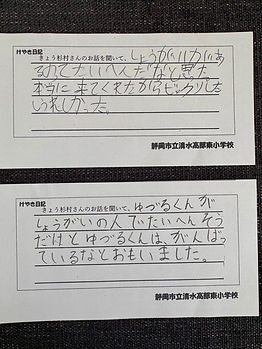 けやき日記
きょう杉村さんのお話を聞いて、しょうがい力があ
るのでたいへんだなと思た。
本当に来てくれたからビックリした
しうれしかった。
静岡市立清水高部東小学校
けやき日記
きょう杉村さんのお話を聞いて、ゆづるくんが
しょうがいの人でたいへんそう
だけどゆづるくんは、がんばっ
ているなとおもいました。
静岡市立清水高部東小学校